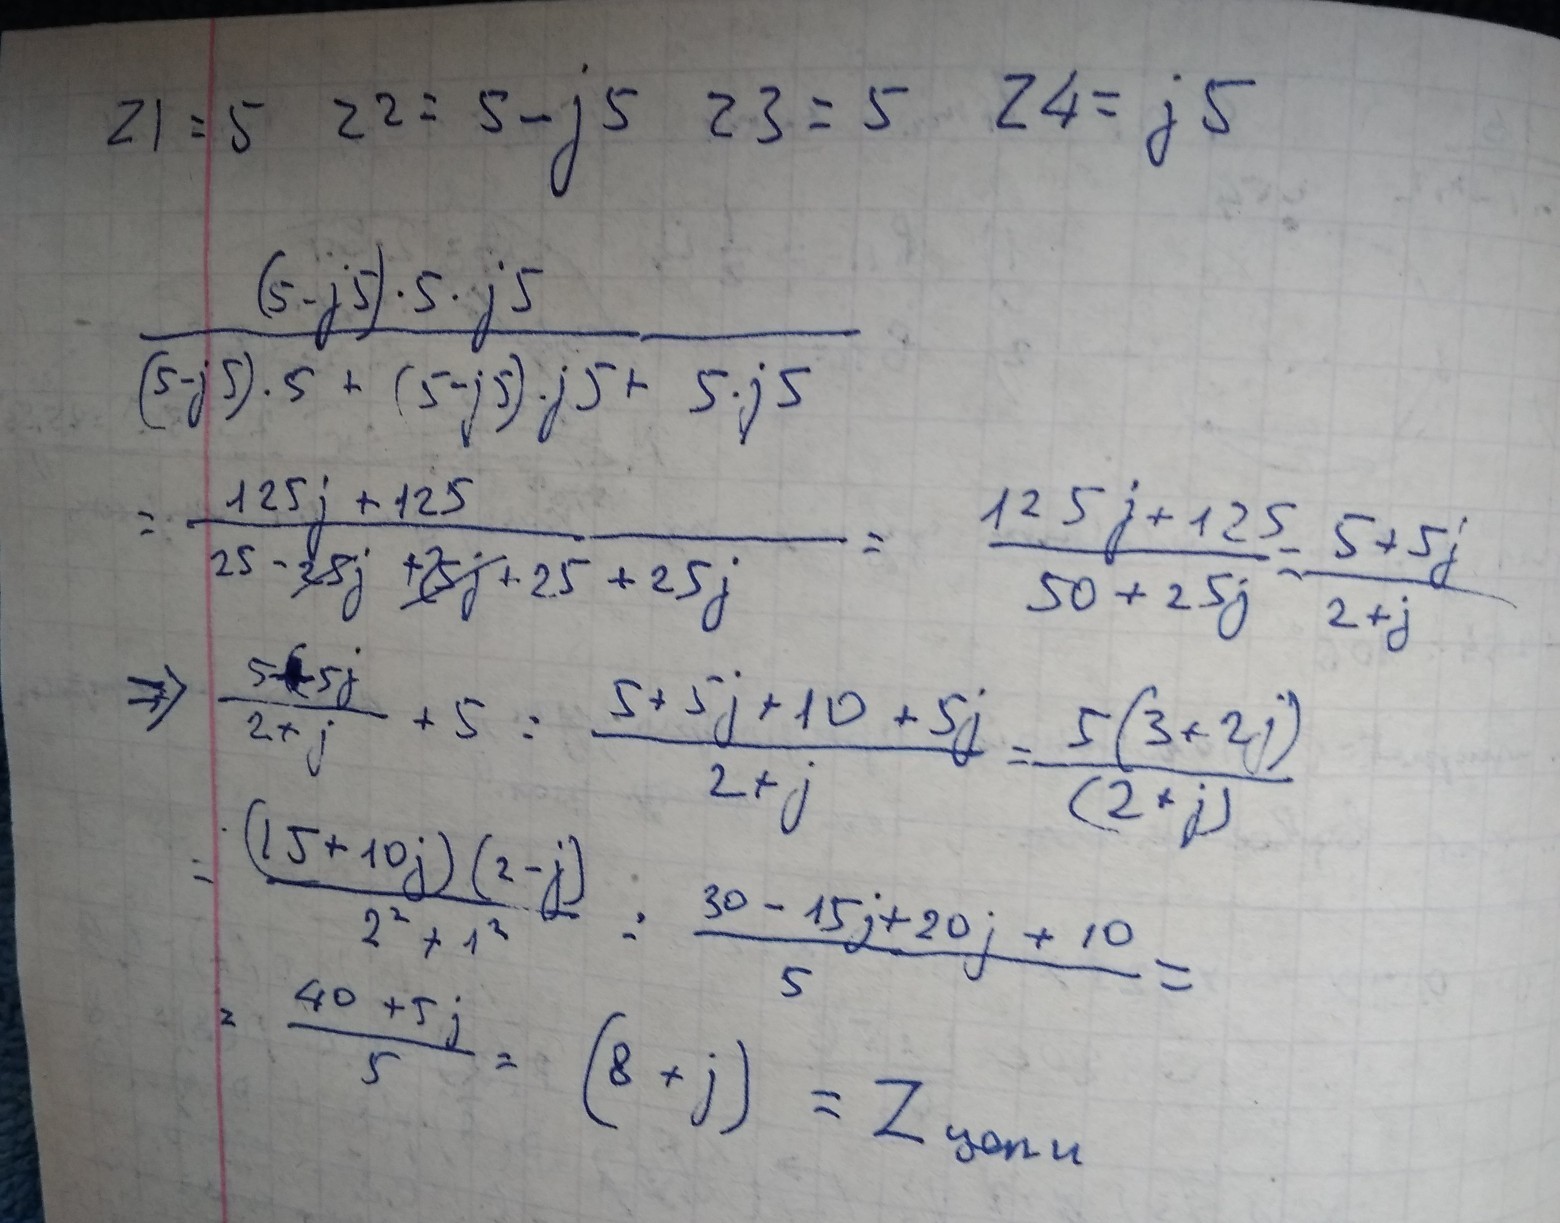 Z1 = 5 Z2 = 5 - j5 Z3 = 5 Z4 = j5
(5-j5)·5·j5
(5-j5)·5 + (5-j5)·j5 + 5·j5
= 125j + 125 / 25 - 25j + 25j + 25 + 25j = 125j + 125 / 50 + 25j = 5 + 5j / 2 + j
⇒ 5+5j / 2+j + 5 = 5 + 5j + 10 + 5j / 2 + j = 5(3 + 2j) / (2 + j)
= (15 + 10j)(2 - j) / 2² + 1² = 30 - 15j + 20j + 10 / 5 =
= 40 + 5j / 5 = (8 + j) = Z цепи